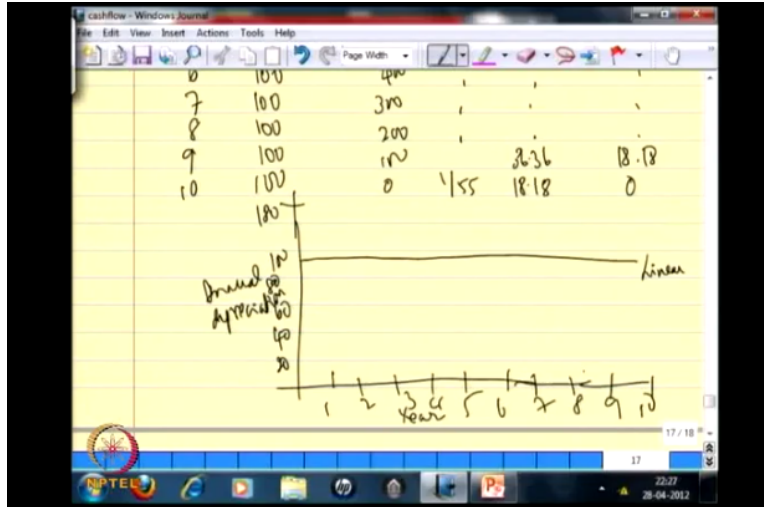 cashflow - Windows Journal
File Edit View Insert Actions Tools Help
Page Width
6 100 400
7 100 300
8 100 200
9 100 100 36.36 18.18
10 100 0 1/55 18.18 0
180
100
Annual 80
depreciation 60
40
20
Linear
1 2 3 4 5 6 7 8 9 10
Year
17 / 18
17
NPTEL
22:27
28-04-2012